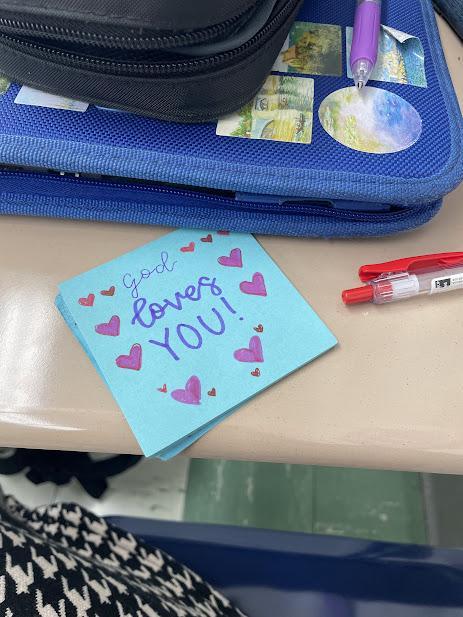 God
loves
YOU!